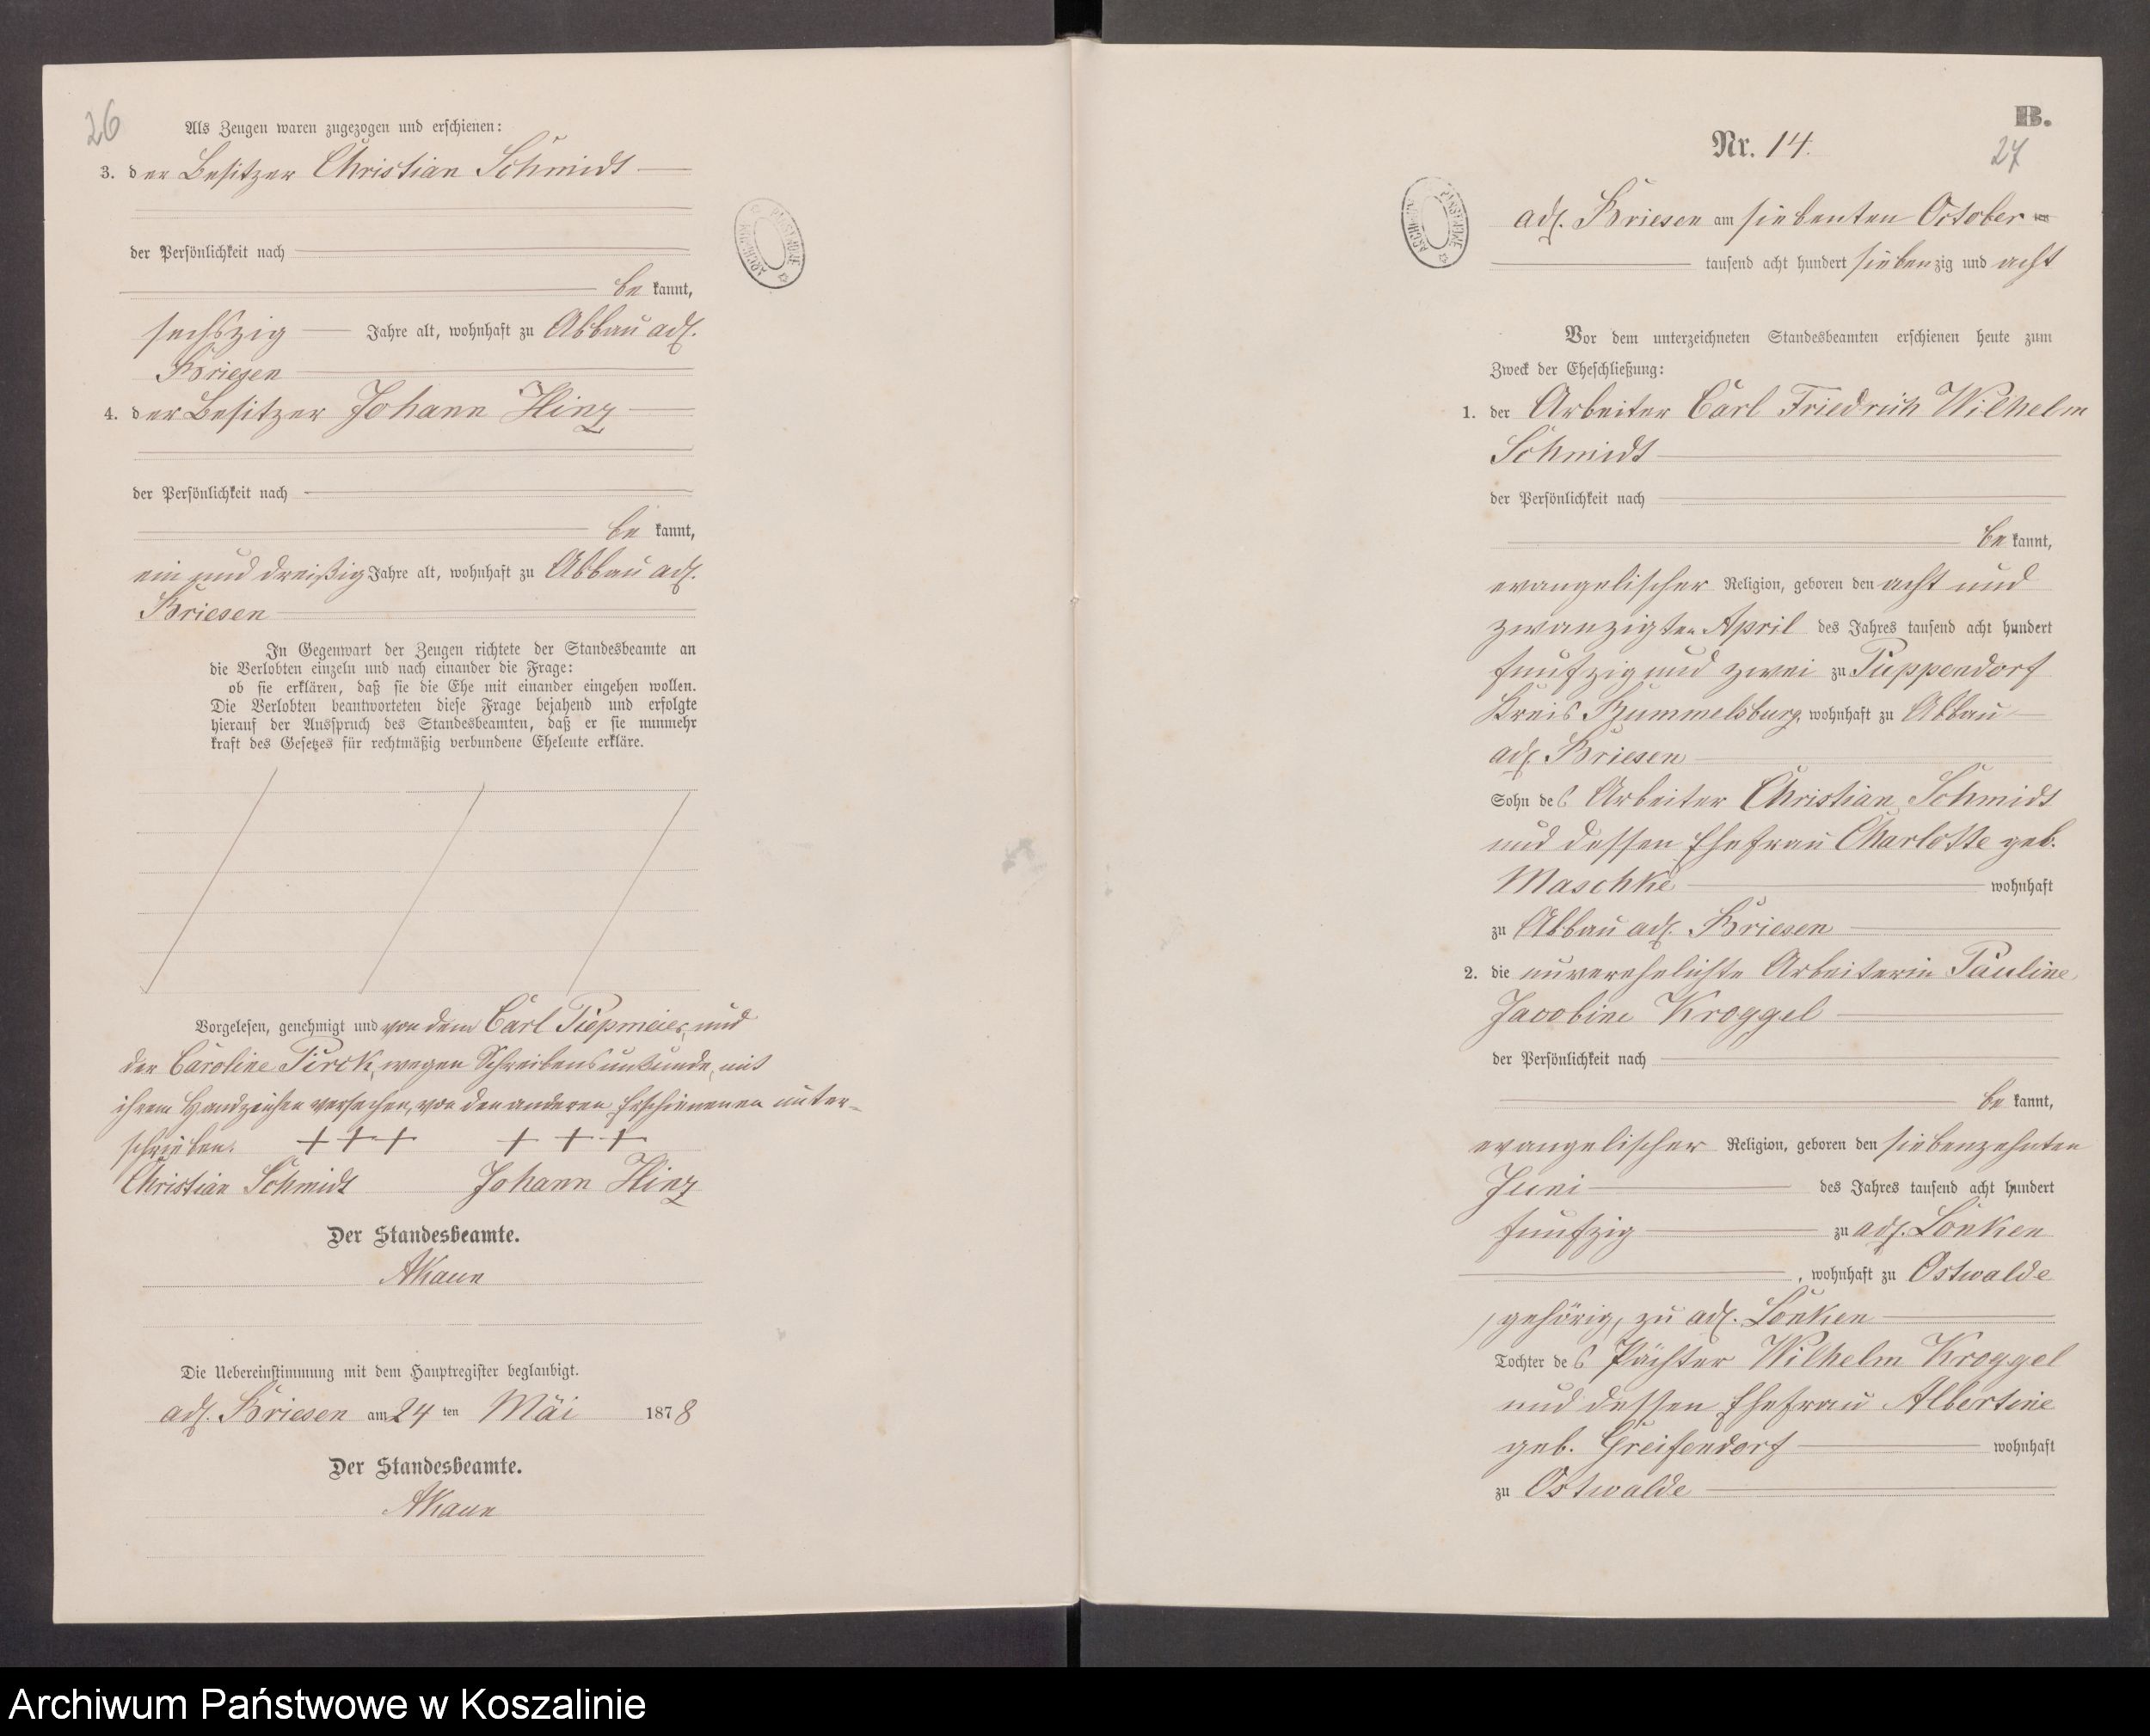 26
Als Zeugen waren zugezogen und erschienen:
3. der Besitzer Christian Schmidt
der Persönlichkeit nach
be kannt,
sechszig Jahre alt, wohnhaft zu Abbau adl.
Briesen
4. der Besitzer Johann Hinz
der Persönlichkeit nach
be kannt,
ein und dreißig Jahre alt, wohnhaft zu Abbau adl.
Briesen
In Gegenwart der Zeugen richtete der Standesbeamte an
die Verlobten einzeln und nach einander die Frage:
ob sie erklären, daß sie die Ehe mit einander eingehen wollen.
Die Verlobten beantworteten diese Frage bejahend und erfolgte
hierauf der Ausspruch des Standesbeamten, daß er sie nunmehr
kraft des Gesetzes für rechtmäßig verbundene Eheleute erkläre.
Vorgelesen, genehmigt und von dem Carl Piepmeier, und
der Caroline Pirck, wegen Schreibensunkunde, mit
ihrem Handzeichen versehen, von den anderen Erschienenen unter-
schrieben. +++ +++
Christian Schmidt Johann Hinz
Der Standesbeamte.
Die Uebereinstimmung mit dem Hauptregister beglaubigt.
adl. Briesen am 24 ten Mai 1878
Der Standesbeamte.
B.
Nr. 14.
27
adl. Briesen am siebenten October
tausend acht hundert siebenzig und acht
Vor dem unterzeichneten Standesbeamten erschienen heute zum
Zweck der Eheschließung:
1. der Arbeiter Carl Friedrich Wilhelm
Schmidt
der Persönlichkeit nach
be kannt,
evangelischer Religion, geboren den acht und
zwanzigten April des Jahres tausend acht hundert
funfzig und zwei zu Püppendorf
Kreis Rummelsburg, wohnhaft zu Abbau
adl. Briesen
Sohn des Arbeiter Christian Schmidt
und dessen Ehefrau Charlotte geb.
Maschke wohnhaft
zu Abbau adl. Briesen
2. die unverehelichte Arbeiterin Pauline
Jacobine Kroggel
der Persönlichkeit nach
be kannt,
evangelischer Religion, geboren den siebenzehnten
Juni des Jahres tausend acht hundert
funfzig zu adl. Lonken
, wohnhaft zu Ostwalde
gehörig, zu adl. Lonken
Tochter des Pächter Wilhelm Kroggel
und dessen Ehefrau Albertine
geb. Greifendorf wohnhaft
zu Ostwalde
Archiwum Państwowe w Koszalinie